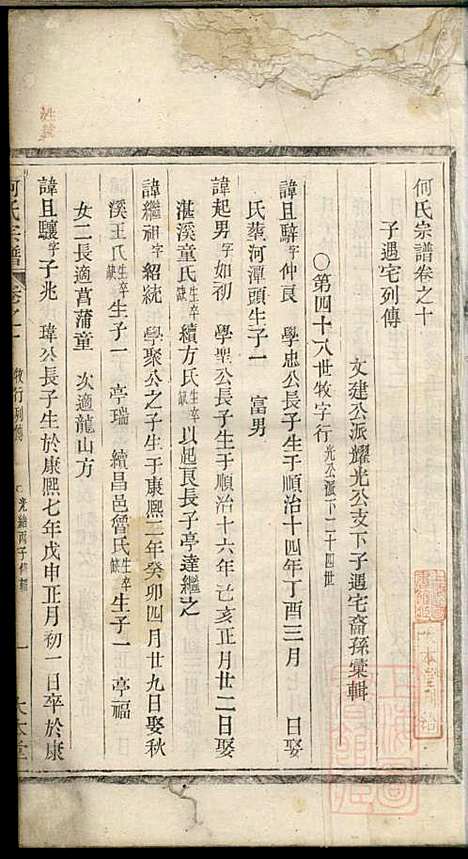 何氏宗譜卷之十
子遇宅列傳
文建公派耀光公支下子遇宅裔孫彙輯
○第四十八世牧字行光公派下二十四世
諱且騂字仲良 學忠公長子生于順治十四年丁酉三月 娶
氏葬河潭頭生子一 富男
諱起男字如初 學聖公長子生于順治十六年己亥正月廿二日娶
湛溪童氏生卒缺續方氏生卒缺以起良長子亭達繼之
諱繼祖字紹統 學聚公之子生于康熙二年癸卯四月廿九日娶秋
溪王氏生卒缺生子一 亭瑞 續昌邑曾氏生卒缺生子一 亭福
女二長適菖蒲童 次適龍山方
諱且驤字子兆 瑋公長子生於康熙七年戊申正月初一日卒於康
何氏宗譜 卷之十 牧行列傳 光緒丙子 一 大本堂